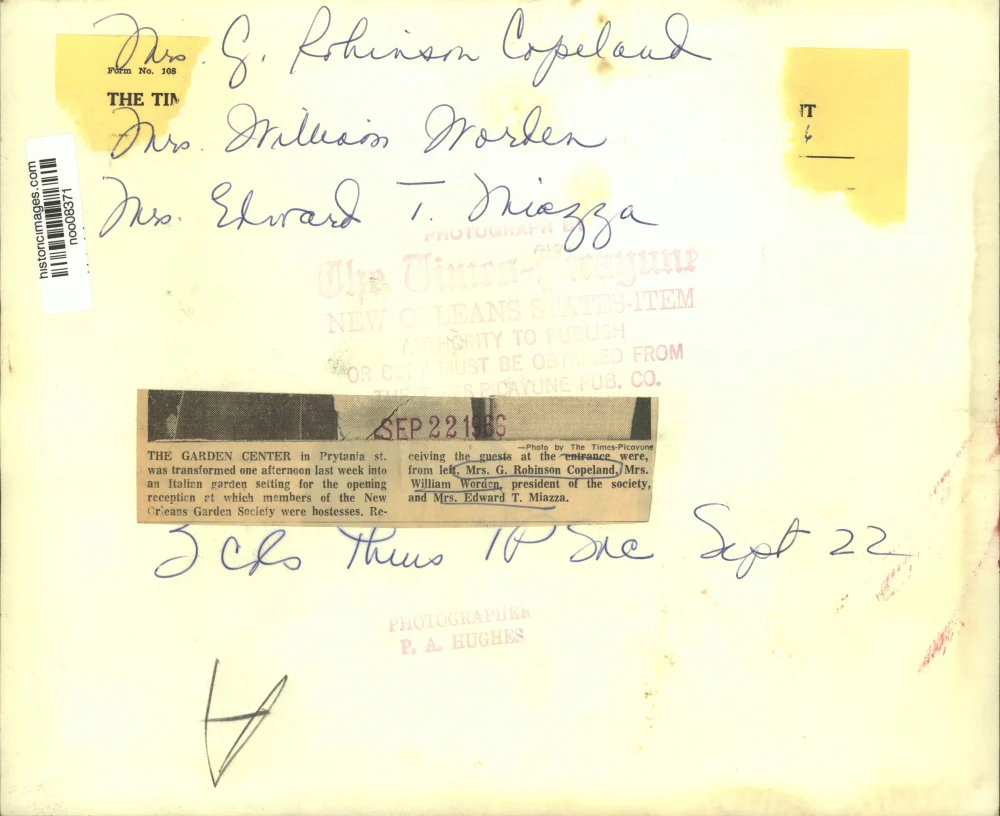 Mrs. G. Robinson Copeland
Form No. 108
THE TIM
IT
Mrs. William Worden
Mrs. Edward T. Miazza
historicimages.com
noo08371
PHOTOGRAPH BY
The Times-Picayune
NEW ORLEANS STATES-ITEM
AUTHORITY TO PUBLISH
OR COPY MUST BE OBTAINED FROM
THE TIMES PICAYUNE PUB. CO.
SEP 22 1966
—Photo by The Times-Picayune
THE GARDEN CENTER in Prytania st.
was transformed one afternoon last week into
an Italian garden setting for the opening
reception at which members of the New
Orleans Garden Society were hostesses. Re-
ceiving the guests at the entrance were,
from left, Mrs. G. Robinson Copeland, Mrs.
William Worden, president of the society,
and Mrs. Edward T. Miazza.
Thurs TP Soc Sept 22
PHOTOGRAPHER
P. A. HUGHES